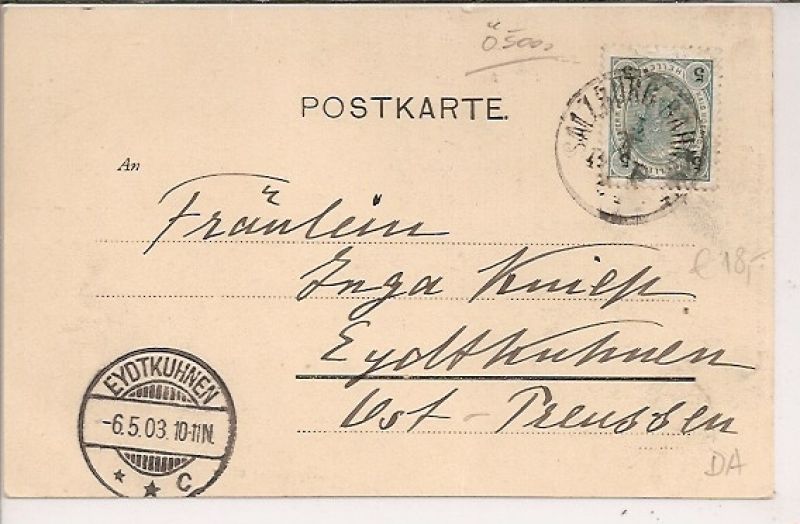 Ö 500
POSTKARTE.
SALZBURG BAHNHOF
5 HELLER 5
An
Fräulein
Inga Kniess
€ 18,-
Eydtkuhnen
Ost-Preussen
EYDTKUHNEN
-6.5.03. 10-11N.
* * C
DA